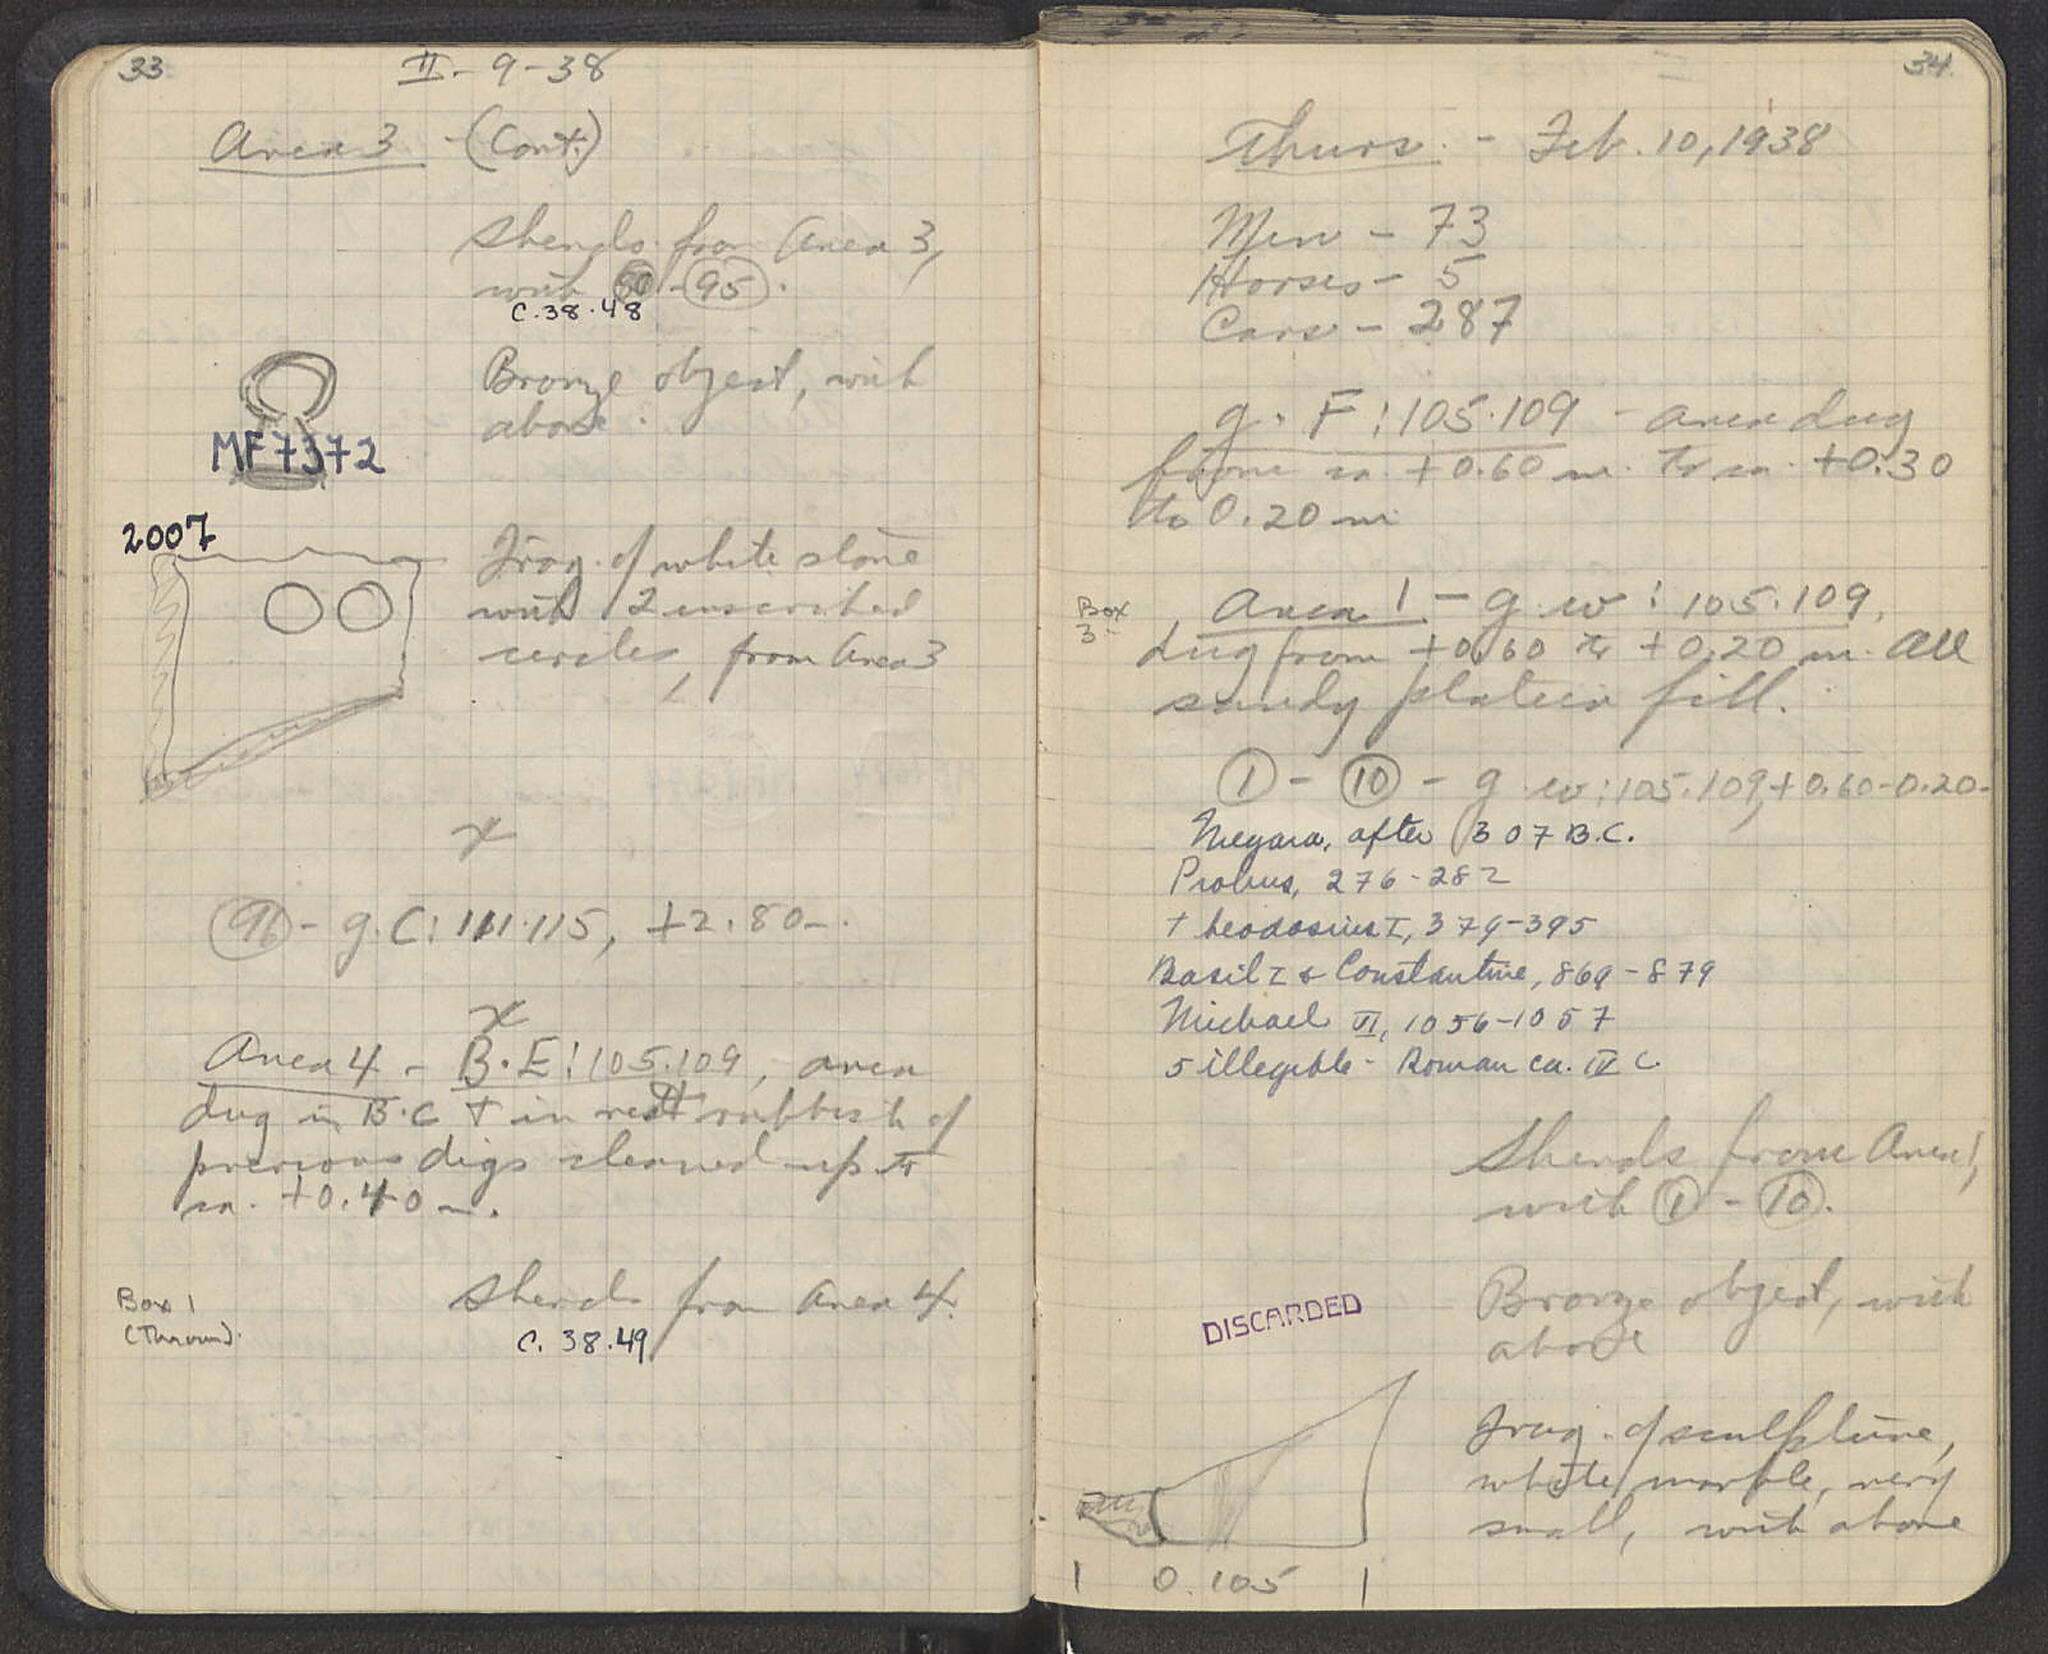 33
II-9-38
Area 3 - (Cont.)
Sherds from Area 3,
with - 95.
C.38.48
Bronze object, with
above.
MF7372
2007
Frag. of white stone
with 2 inscribed
circles, from Area 3
x
96 - g.C:111.115, +2.80 m.
x
Area 4 - B.E:105.109, area
dug in B.C & in rest rubbish of
previous digs cleaned up to
ca. +0.40 m.
Box 1
(Thrown).
Sherds from Area 4.
C.38.49
34
Thurs. - Feb. 10, 1938
Men - 73
Horses - 5
Cars - 287
g.F:105.109 - area dug
from ca. +0.60 m. to ca. +0.30
to 0.20 m
Box
3
Area 1 - g.w:105.109,
dug from +0.60 to +0.20 m. All
sandy plateia fill.
1 - 10 - g.w:105.109,+0.60-0.20-
Megara, after 307 B.C.
Probus, 276-282
Theodosius I, 379-395
Basil I & Constantine, 869-879
Michael VI, 1056-1057
5 illegible - Roman ca. IV C.
Sherds from Area 1,
with 1 - 10.
DISCARDED
Bronze object, with
above
Frag. of sculpture,
white marble, very
small, with above
0.105